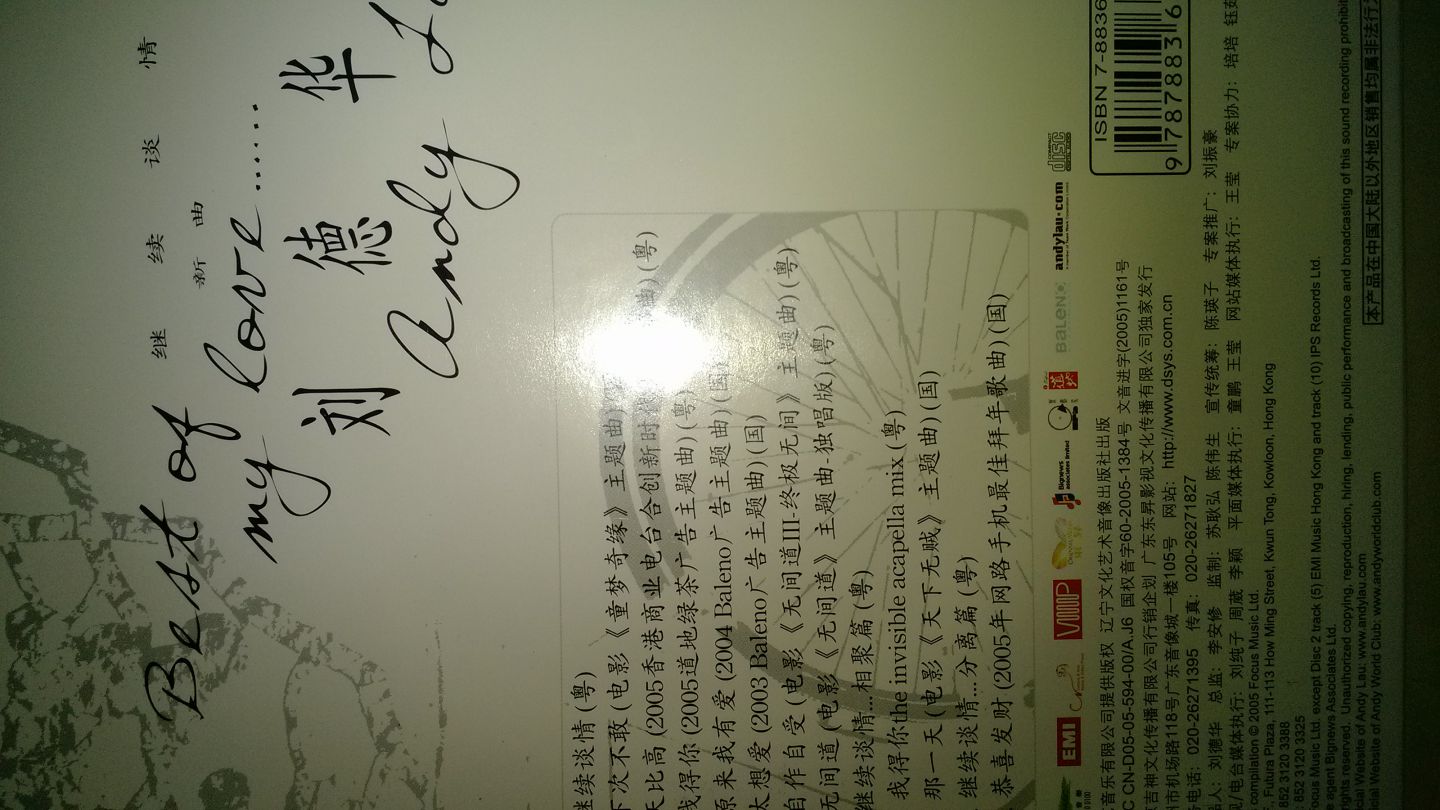 继 续 谈 情
新 曲
Best of
my love......
刘 德 华
Andy
继续谈情 (粤)
下次不敢 (电影《童梦奇缘》主题曲)
天比高 (2005香港商业电台合创新时 曲) (粤)
我得你 (2005道地绿茶广告主题曲) (粤)
原来我有爱 (2004 Baleno广告主题曲) (国)
太想爱 (2003 Baleno广告主题曲) (国)
自作自受 (电影《无间道III-终极无间》主题曲) (粤)
无间道 (电影《无间道》主题曲-独唱版) (粤)
继续谈情...相聚篇 (粤)
我得你the invisible acapella mix (粤)
那一天 (电影《天下无贼》主题曲) (国)
继续谈情...分离篇 (粤)
恭喜发财 (2005年网路手机最佳拜年歌曲) (国)
EMI
VIIIP
Bignews
associates limited
BALENO
andylau·com
COMPACT
disc
DIGITAL AUDIO
ISBN 7-8836
9 787883 6
音乐有限公司提供版权 辽宁文化艺术音像出版社出版
C CN-D05-05-594-00/A.J6 国权音字60-2005-1384号 文音进字(2005)1161号
吉神文化传播有限公司行销企划 广东东昇影视文化传播有限公司独家发行
市机场路118号广东音像城一楼105号 网站: http://www.dsys.com.cn
电话: 020-26271395 传真: 020-26271827
人: 刘德华 总监: 李安修 监制: 苏耿弘 陈伟生 宣传统筹: 陈瑛子 专案推广: 刘振豪
/电台媒体执行: 刘纯子 周葳 李颖 平面媒体执行: 童鹏 王莹 网站媒体执行: 王莹 专案协力: 培培 钰茹
compilation © 2005 Focus Music Ltd.
Futura Plaza, 111-113 How Ming Street, Kwun Tong, Kowloon, Hong Kong
852 3120 3388
8652 3120 3325
ocus Music Ltd. except Disc 2 track (5) EMI Music Hong Kong and track (10) IPS Records Ltd.
agent Bignews Associates Ltd.
ights reserved. Unauthorized copying, reproduction, hiring, lending, public performance and broadcasting of this sound recording prohibit
al Website of Andy Lau: www.andylau.com
al Website of Andy World Club: www.andyworldclub.com
本产品在中国大陆以外地区销售均属非法行为